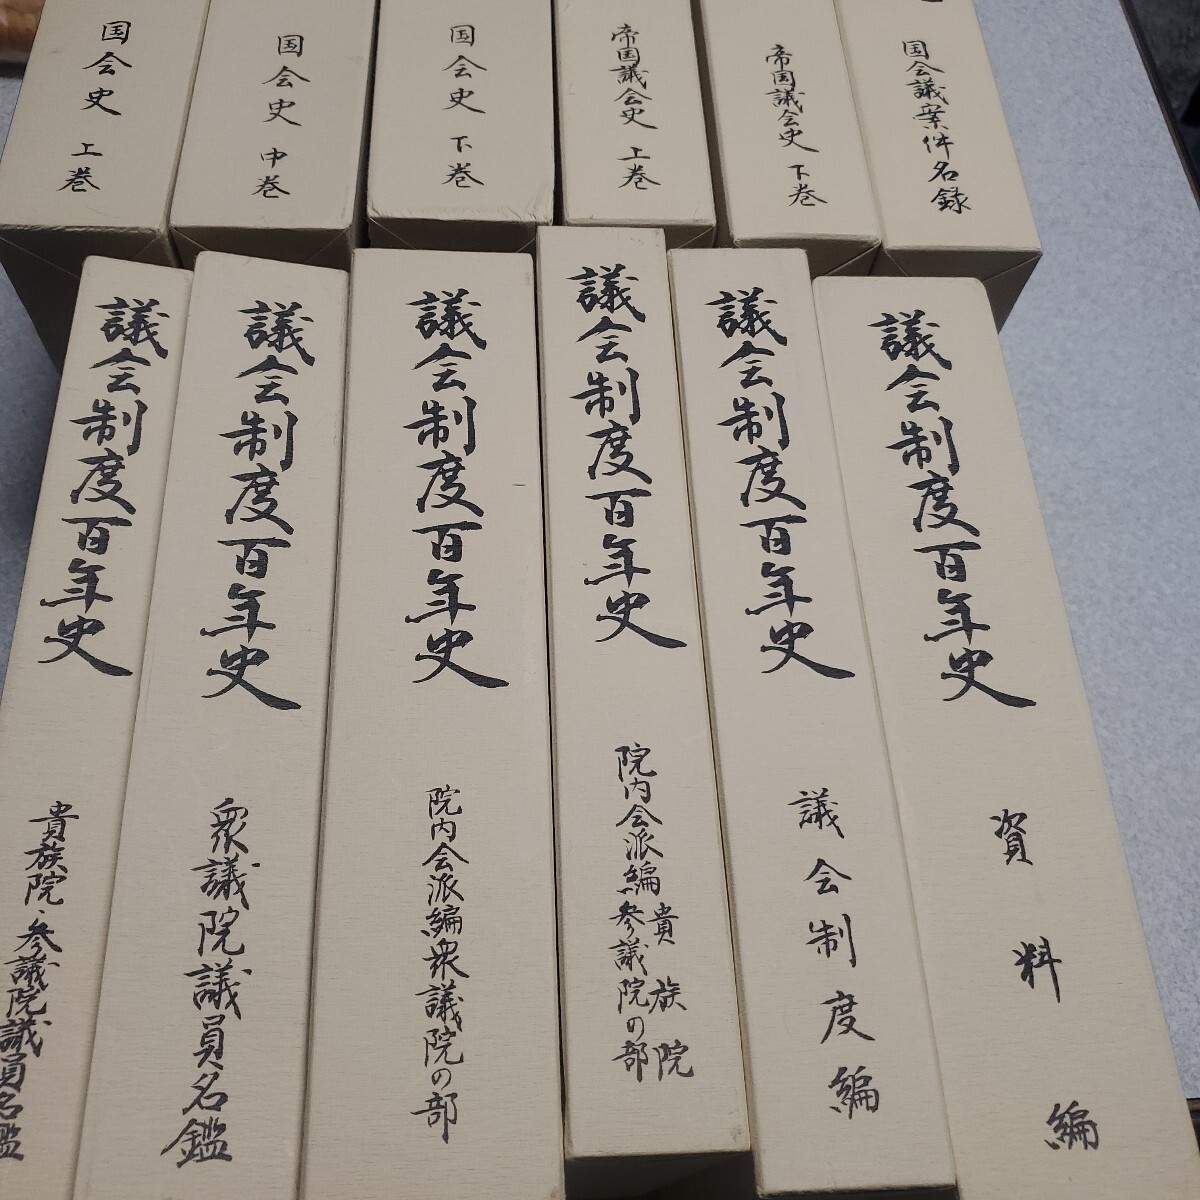 国会史 上巻
国会史 中巻
国会史 下巻
帝国議会史 上巻
帝国議会史 下巻
国会議案件名録
議会制度百年史
貴族院・参議院議員名鑑
議会制度百年史
衆議院議員名鑑
議会制度百年史
院内会派編衆議院の部
議会制度百年史
院内会派編貴族院
参議院の部
議会制度百年史
議会制度編
議会制度百年史
資料編